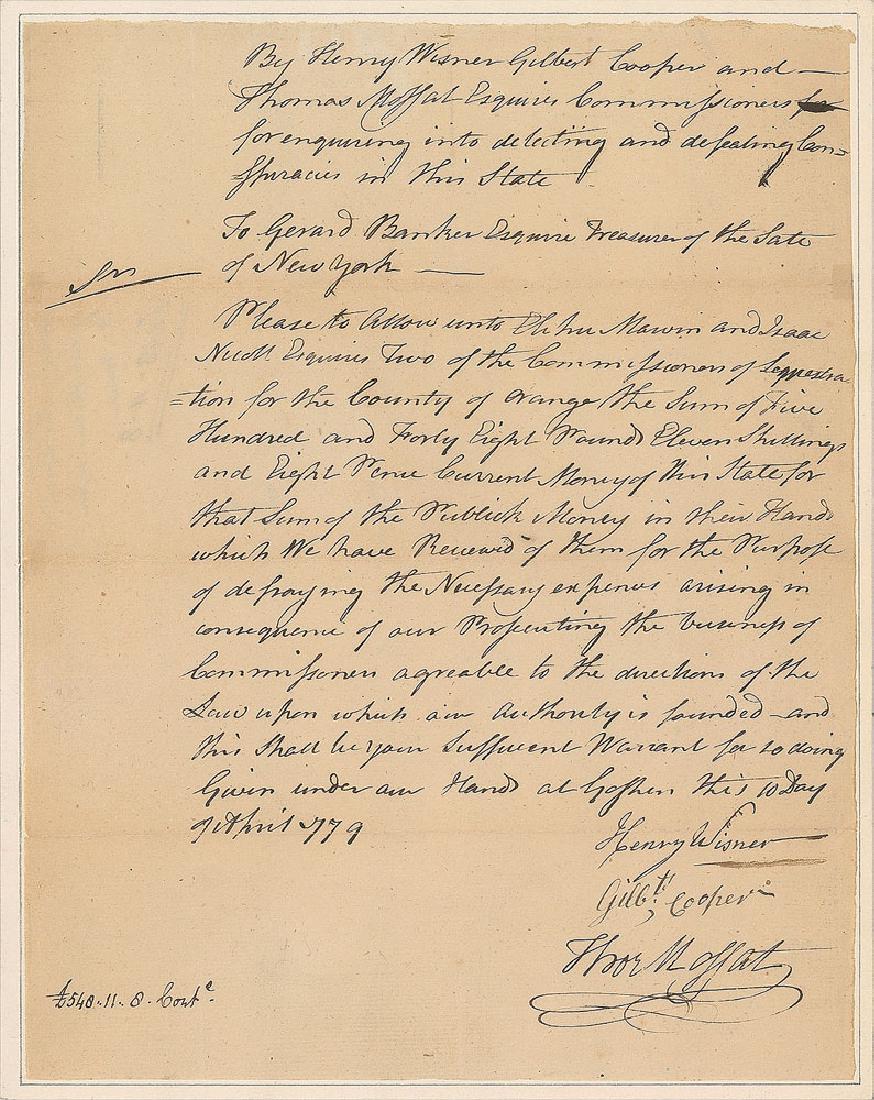 By Henry Wisner Gilbert Cooper and —
Thomas Moffat Esquires Commissioners
for enquiring into detecting and defeating Con=
spiracies in this State
To Gerard Banker Esquire Treasurer of the Sate
of New York —
Sir
Please to Allow unto Elihu Marvin and Isaac
Nicoll Esquires Two of the Commissioners of Sequestra
=tion for the County of Orange the Sum of Five
Hundred and Forty Eight Pounds Eleven Shillings
and Eight Pence Current Money of this State for
that Sum of the Publick Money in their Hands
which We have Received of them for the Purpose
of defraying the Necessary expences arising in
consequence of our Prosecuting the business of
Commissioners agreable to the directions of the
Law upon which our Authority is founded and
this Shall be your Sufficient Warrant for so doing
Given under our Hands at Goshen this 10 Day
of April 1779
Henry Wisner
Gilbt. Cooper
Thos Moffat
£548..11..8. Cont.e